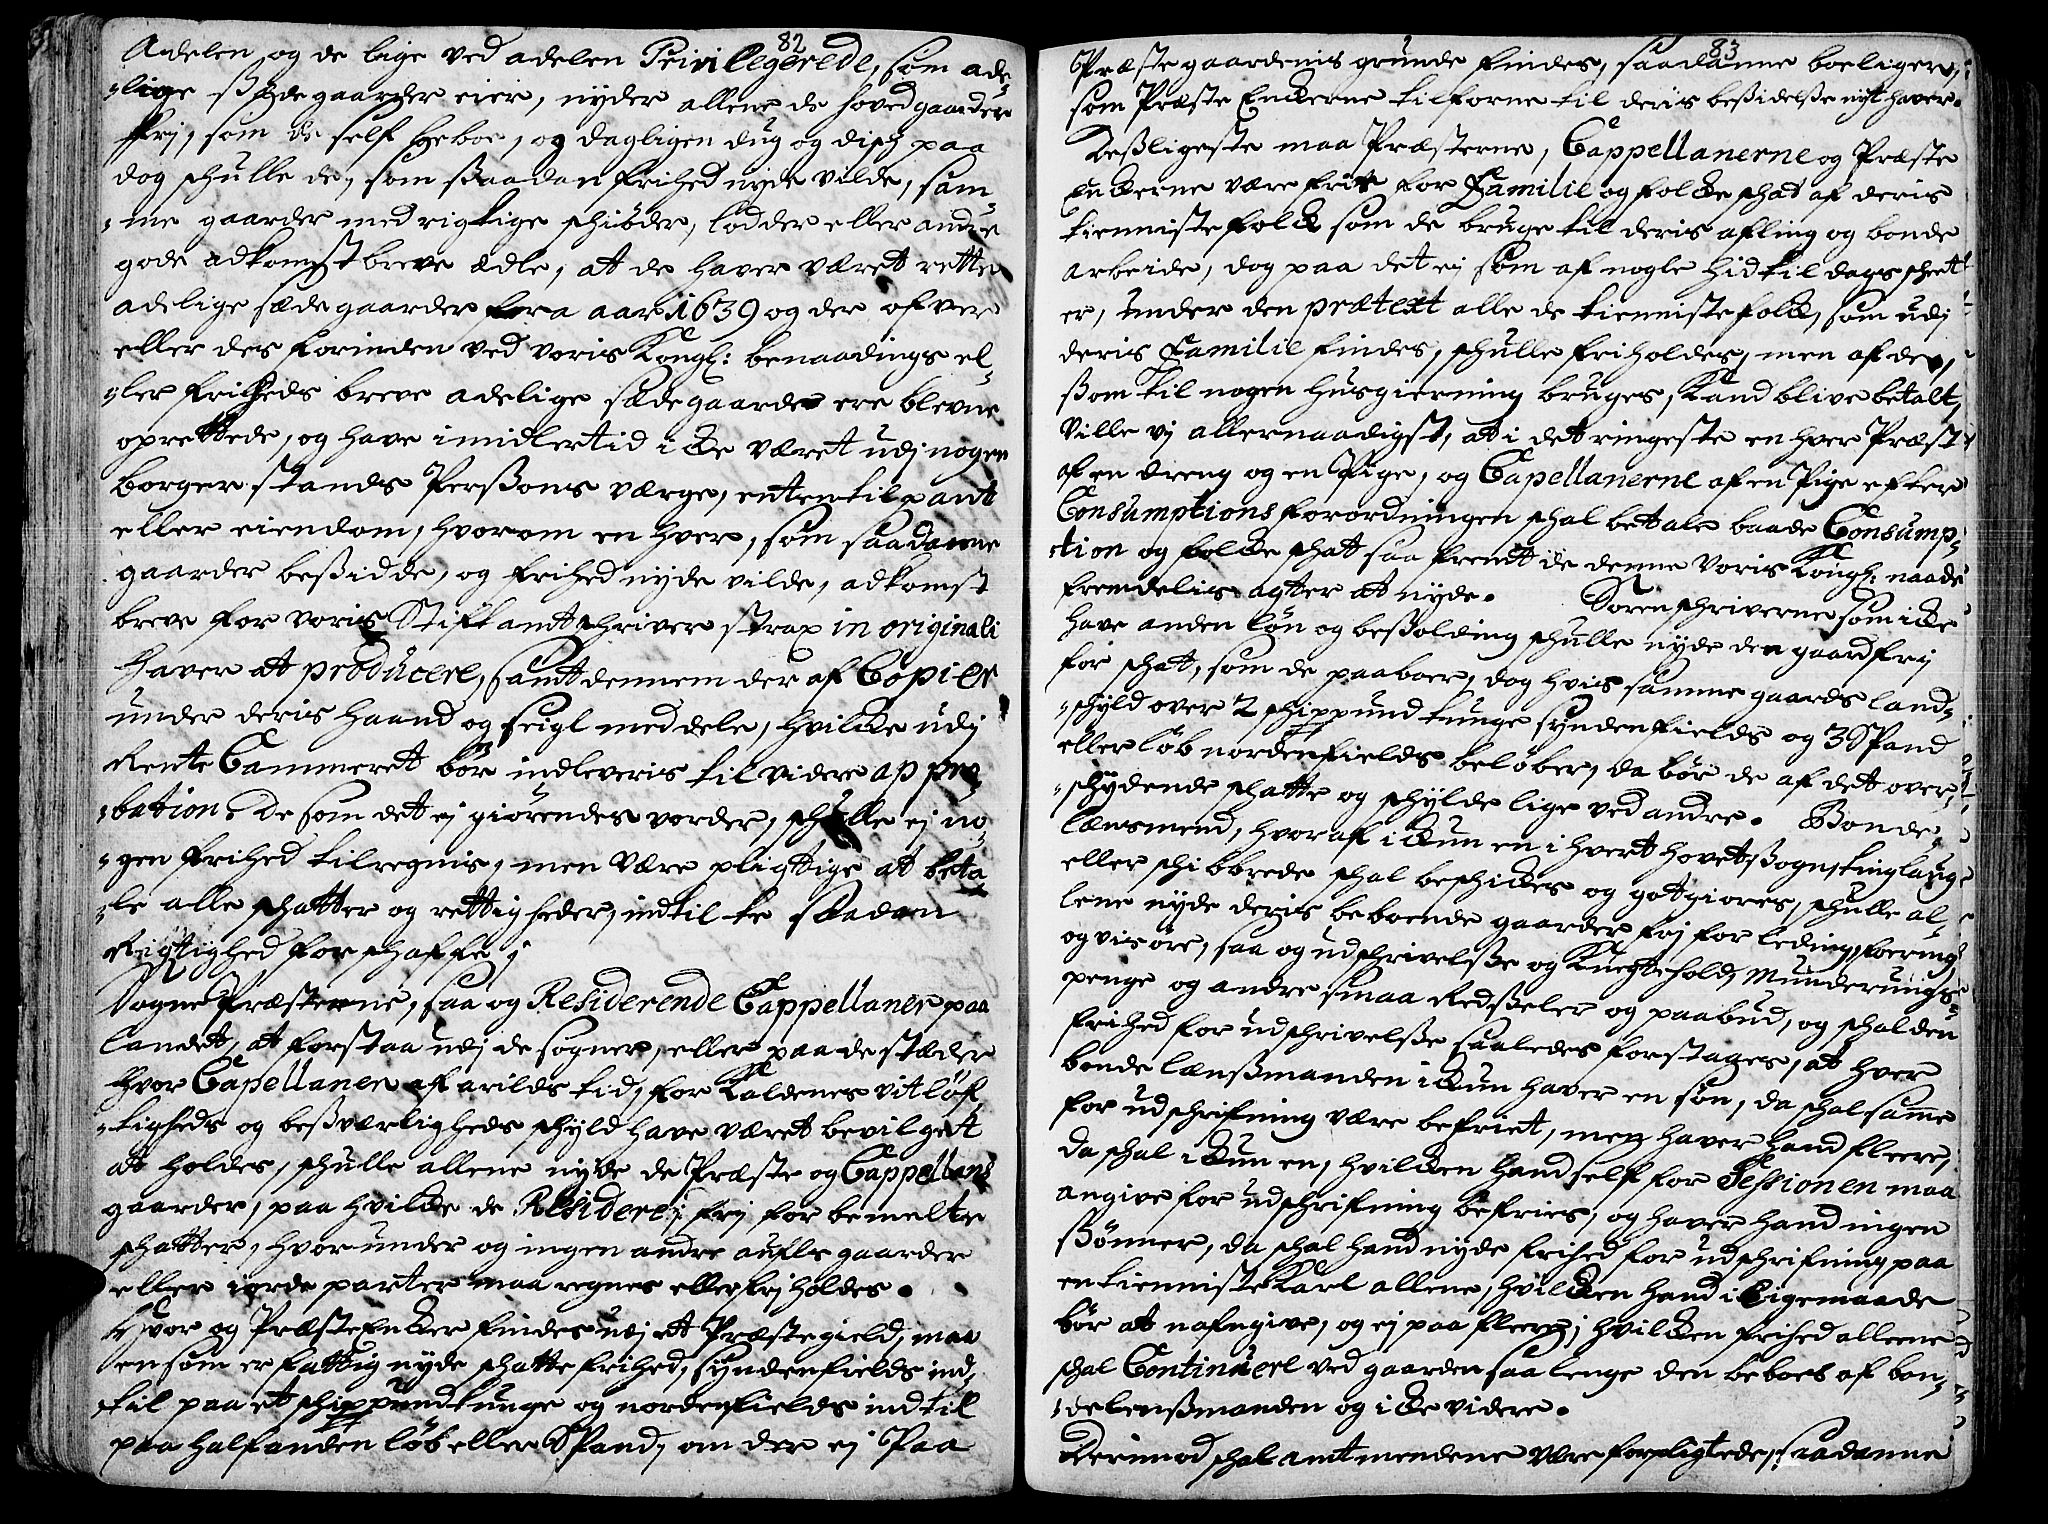 82
Adelen og de lige ved adelen Privilegerede, som ade¬
„lige sædegaarder eier, nyder allene de hovedgaarder
frj, som de self beboe, og dagligen dug og disch paa
dog schulle de, som ssaadan frihed nyde vilde, sam¬
„me gaarder med rigtige schiøder, lodder eller andre
gode adkomstbreve ædle, at de haver været rette
adelige sædegaarder fra aar 1639 og der ofver
eller des forinden ved voris Kongl: benaadings el¬
„ler friheds breve adelige sædegaarde ere blevne
oprettede, og have imidlertid icke været udj nogen
borger stands Perssons værge, enten til pant
eller eiendom, hvorom en hver, som saadanne
gaarder bessidde, og frihed nyde vilde, adkomst
breve for voris Stiftamtschriver strax in originali
haver at producere, samt dennem der af Copier
under deris haand og seigl meddele, hvilcke udj
Rente Cammeret bør indleveris til videre appro
„bation. De som det ej giørendes vorder, schulle ej no¬
„gen frihed tilregnis, men være pligtige at beta
„le alle schatter og rettigheder, indtil de saadan
Rigtighed forschaffe;
Sogne Præsterne, saa og Residerende Cappellaner paa
landet, at forstaa udj de sogner, eller paa de stæder
hvor Capellaner af arilds tid, for Kaldenes vitløf
„tigheds og bessværligheds schyld have været bevilget
at holdes, schulle allene nyde de Præste og Cappellans
gaarder, paa hvilcke de Residere, frj for bemelte
schatter, hvorunder og ingen andre aufls gaarder
eller iorde parter maa regnes eller frj holdes.
Hvor og Præste Encker findes udj et Præstegield, maa
en som er fattig nyde schatte frihed, syndenfields ind¬
til paa et schippund tunge og nordenfields indtil
paa halfanden løb eller Spand, om der ej Paa
83
Præstegaardenis grunde findes, saadanne boeliger,
som Præste Enckerne tilforne til deris bessidelsse nyt haver.
Dessligeste maa Præsterne, Cappellanerne og Præste
Enckerne være frie for Familie og folcke schat af deris
tienniste folck som de bruge til deris afling og bonde
arbeide, dog paa det ej som af nogle hid til dags scheet
er, under den prætext alle de tienniste folck, som udj
deris Familie findes, schulle friholdes, men af de,
ssom til nogen husgierning bruges, Kand blive betalt,
Ville vj allernaadigst, at i det ringeste en hver Præst
af en dreng og en Pige, og Capellanerne af en Pige efter
Consumptions forordningen schal betale baade Consump¬
tion og folcke schat saa fremt de denne Voris Kongl: naade
fremdelis agter at nyde. Sorenschriverne som icke
have anden løn og bessolding schulle nyde den gaard frj
for schat, som de paaboer, dog hvis samme gaards land¬
„schyld over 2 schippund tunge syndenfields og 3 Spand
eller løb nordenfields beløber, da bør de af det over¬
„schydende schatte og schylde lige ved andre. Bonde
lænsmend, hvoraf ickun en i hvert hovetssogn, tinglauge
eller schibbrede schal beschickes og gotgiøres, schulle al¬
lene nyde deris beboende gaarder frj for leding, foering
og visøre, saa og udschrivelsse og Knegtehold, Munderungs
penge og andre smaa Redsseler og paabud, og schal den
frihed for udschrivelsse saaledes forstages, at hver
bonde lænssmanden ickun haver en søn, da schal samme
for udschrifning være befriet, men haver hand fleere,
da schal ickun en, hvilcken hand self for Sessionen maa
angive for udschrifning befries, og haver hand ingen
ssønner, da schal hand nyde frihed for udschrifning paa
en tienniste Karl allene, hvilcken hand i ligemaade
bør at nafngive, og ej paa fleere; hvilcken frihed allene
schal Continuere ved gaarden saa lenge den beboes af bon¬
„delenssmanden og icke videre.
Derimod schal amtmendene være forpligtede, saadanne